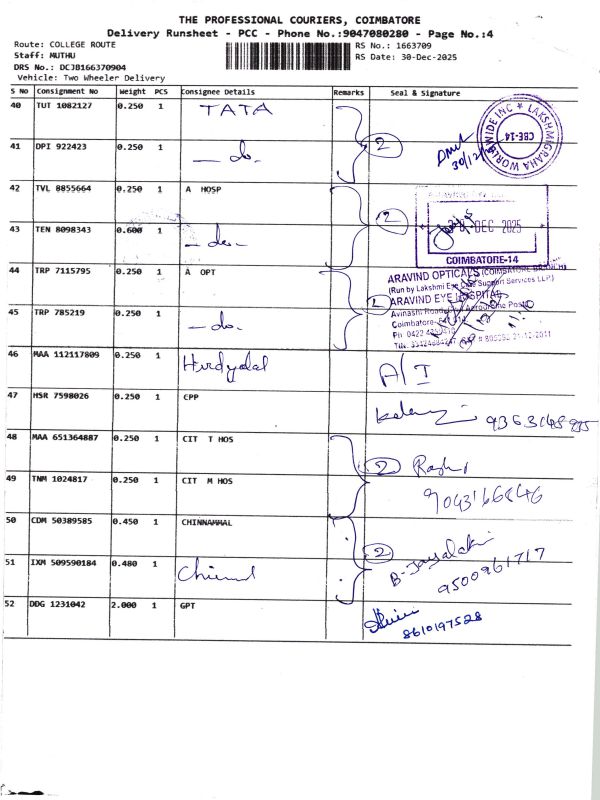 THE PROFESSIONAL COURIERS, COIMBATORE
Delivery Runsheet - PCC - Phone No.:9047080280 - Page No.:4
Route: COLLEGE ROUTE
RS No.: 1663709
Staff: MUTHU
RS Date: 30-Dec-2025
DRS No.: DCJB166370904
Vehicle: Two Wheeler Delivery
S No Consignment No Weight PCS Consignee Details Remarks Seal & Signature
40 TUT 1082127 0.250 1 TATA
41 DPI 922423 0.250 1 — do. 2
30/12/25
LAKSHMIGRAHA WORLDWIDE INC * CBE-14
42 TVL 8855664 0.250 1 A HOSP
43 TEN 8098343 0.600 1 — do. 2
DEC 2025
COIMBATORE-14
44 TRP 7115795 0.250 1 A OPT
ARAVIND OPTICALS (COIMBATORE BRANCH)
(Run by Lakshmi Eye Care Support Services LLP)
ARAVIND EYE HOSPITAL
45 TRP 785219 0.250 1 — do.
Avinashi Road, Civil Aerodrome Post
Coimbatore-
46 MAA 112117809 0.250 1 Hirdyalal A/I
47 HSR 7598026 0.250 1 CPP
48 MAA 651364887 0.250 1 CIT T HOS 2
49 TNM 1024817 0.250 1 CIT M HOS
50 CDM 50389585 0.450 1 CHINNAMMAL 2
B-Jayalakshmi
51 IXM 509590184 0.480 1
9500961717
52 DDG 1231042 2.000 1 GPT
8610197528